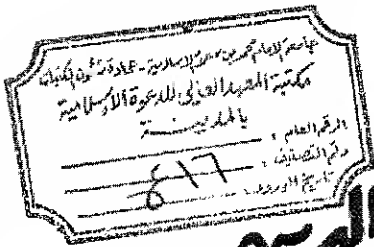 جامعة الإمام محمد بن سعود الإسلامية - عمادة شئون المكتبات
مكتبة المعهد العالي للدعوة الإسلامية
بالمدينـــة
الرقم العام :
رقم التصنيف :
٤١٦
تاريخ الورود :